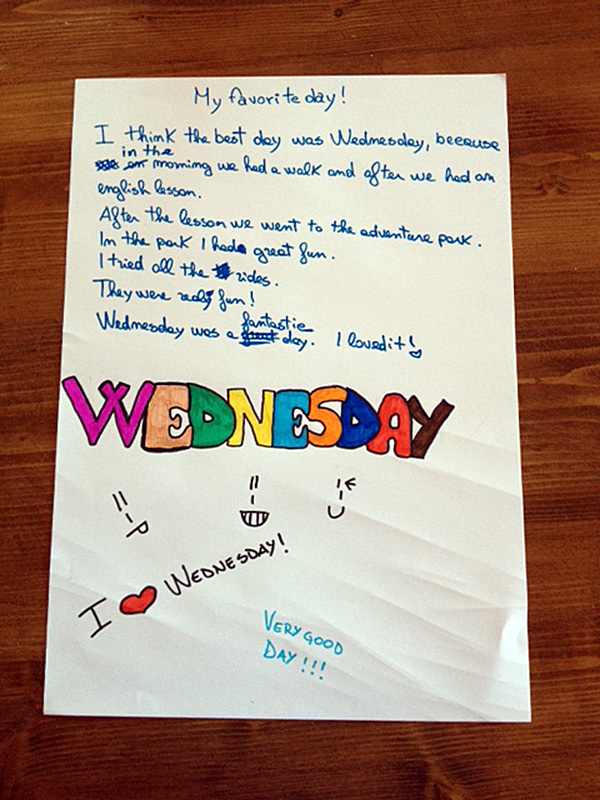 My favorite day!
I think the best day was Wednesday, beceause
in the
morning we had a walk and after we had an
english lesson.
After the lesson we went to the adventure park.
In the park I had great fun.
I tried all the rides.
They were realy fun!
fantastic
Wednesday was a great day. I loved it!
WEDNESDAY
I ❤ WEDNESDAY!
VERY GOOD
DAY!!!